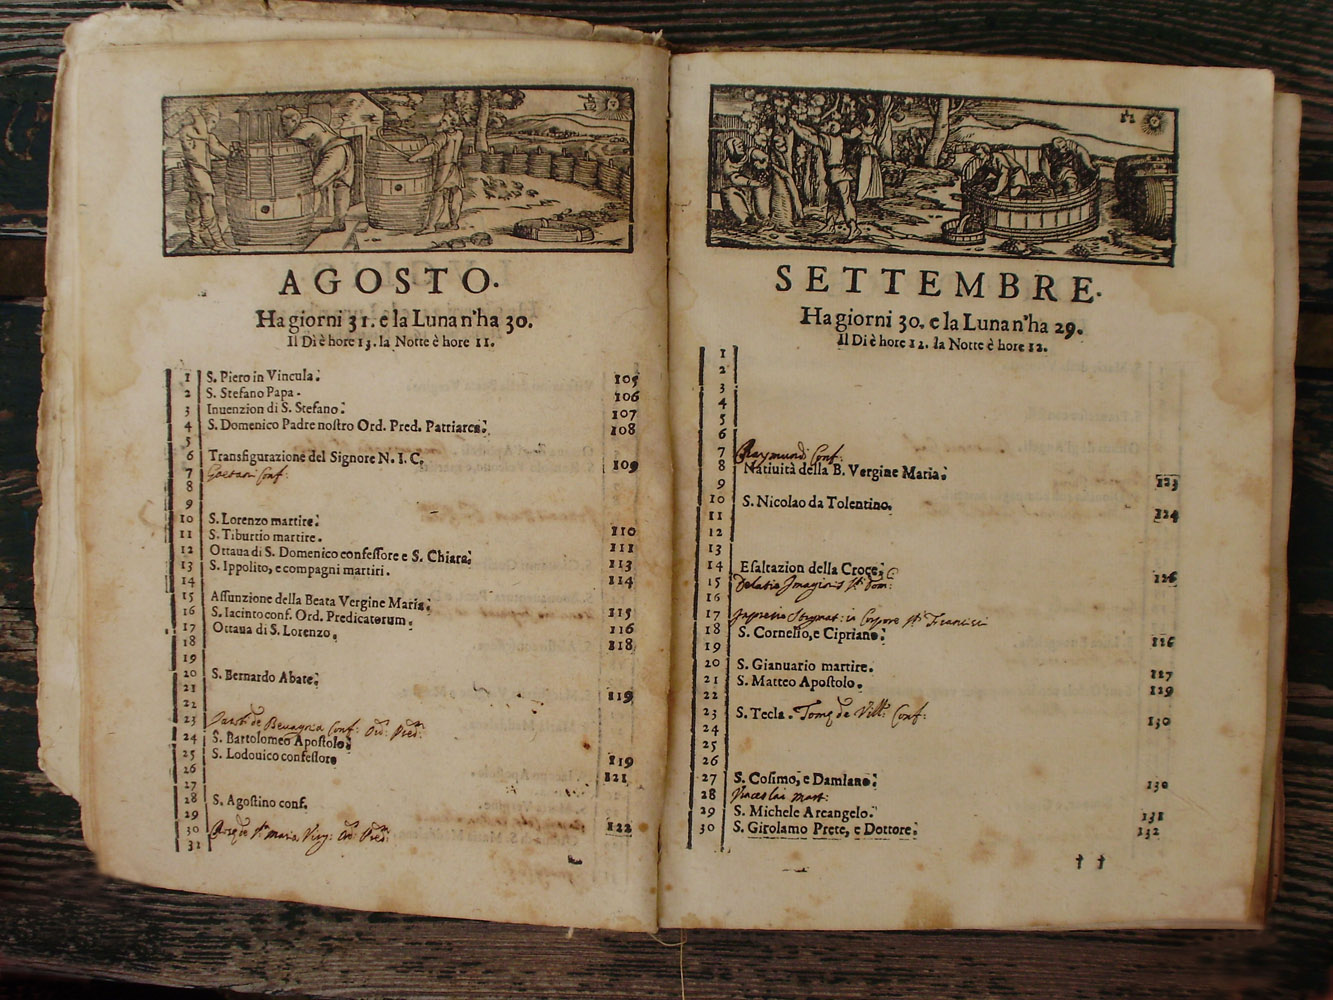 AGOSTO.
Ha giorni 31. e la Luna n'ha 30.
Il Dì è hore 13. la Notte è hore 11.
1 S. Piero in Vincula: 105
2 S. Stefano Papa. 106
3 Inuenzion di S. Stefano: 107
4 S. Domenico Padre nostro Ord. Pred. Patriarca: 108
5
6 Transfigurazione del Signore N. I. C. 109
7 Gaetani Conf.
8
9
10 S. Lorenzo martire: 110
11 S. Tiburtio martire. 111
12 Ottaua di S. Domenico confessore e S. Chiara: 113
13 S. Ippolito, e compagni martiri. 114
14
15 Assunzione della Beata Vergine Maria: 115
16 S. Iacinto conf. Ord. Predicatorum. 116
17 Ottaua di S. Lorenzo. 118
18
19
20 S. Bernardo Abate: 119
21
22
23 de Bevagnia Conf: Or: Pred:
24 S. Bartolomeo Apostolo: 119
25 S. Lodouico confessore 121
26
27
28 S. Agostino conf. 122
29
30 Rosæ S. Maria Virg: Or: Pred:
31
SETTEMBRE.
Ha giorni 30. e la Luna n'ha 29.
Il Dì è hore 12. la Notte è hore 12.
1
2
3
4
5
6
7 Raymundi Conf:
8 Natiuità della B. Vergine Maria: 123
9
10 S. Nicolao da Tolentino. 124
11
12
13
14 Esaltazion della Croce: 126
15 Delatio Imaginis S. Dom:
16
17 Impressio Stigmat: in Corpore S. Francisci
18 S. Cornelio, e Cipriano: 126
19
20 S. Gianuario martire. 127
21 S. Matteo Apostolo. 129
22
23 S. Tecla. Tomæ de Vill: Conf: 130
24
25
26
27 S. Cosimo, e Damiano: 130
28 Vinceslai mart:
29 S. Michele Arcangelo: 131
30 S. Girolamo Prete, e Dottore: 132
† †